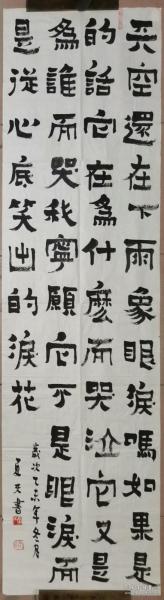 天空還在下雨象眼淚嗎如果是
的話它在為什麼而哭泣它又是
為誰而哭我寧願它不是眼淚而
是從心底笑出的淚花
歲次乙未年冬月
夏天書